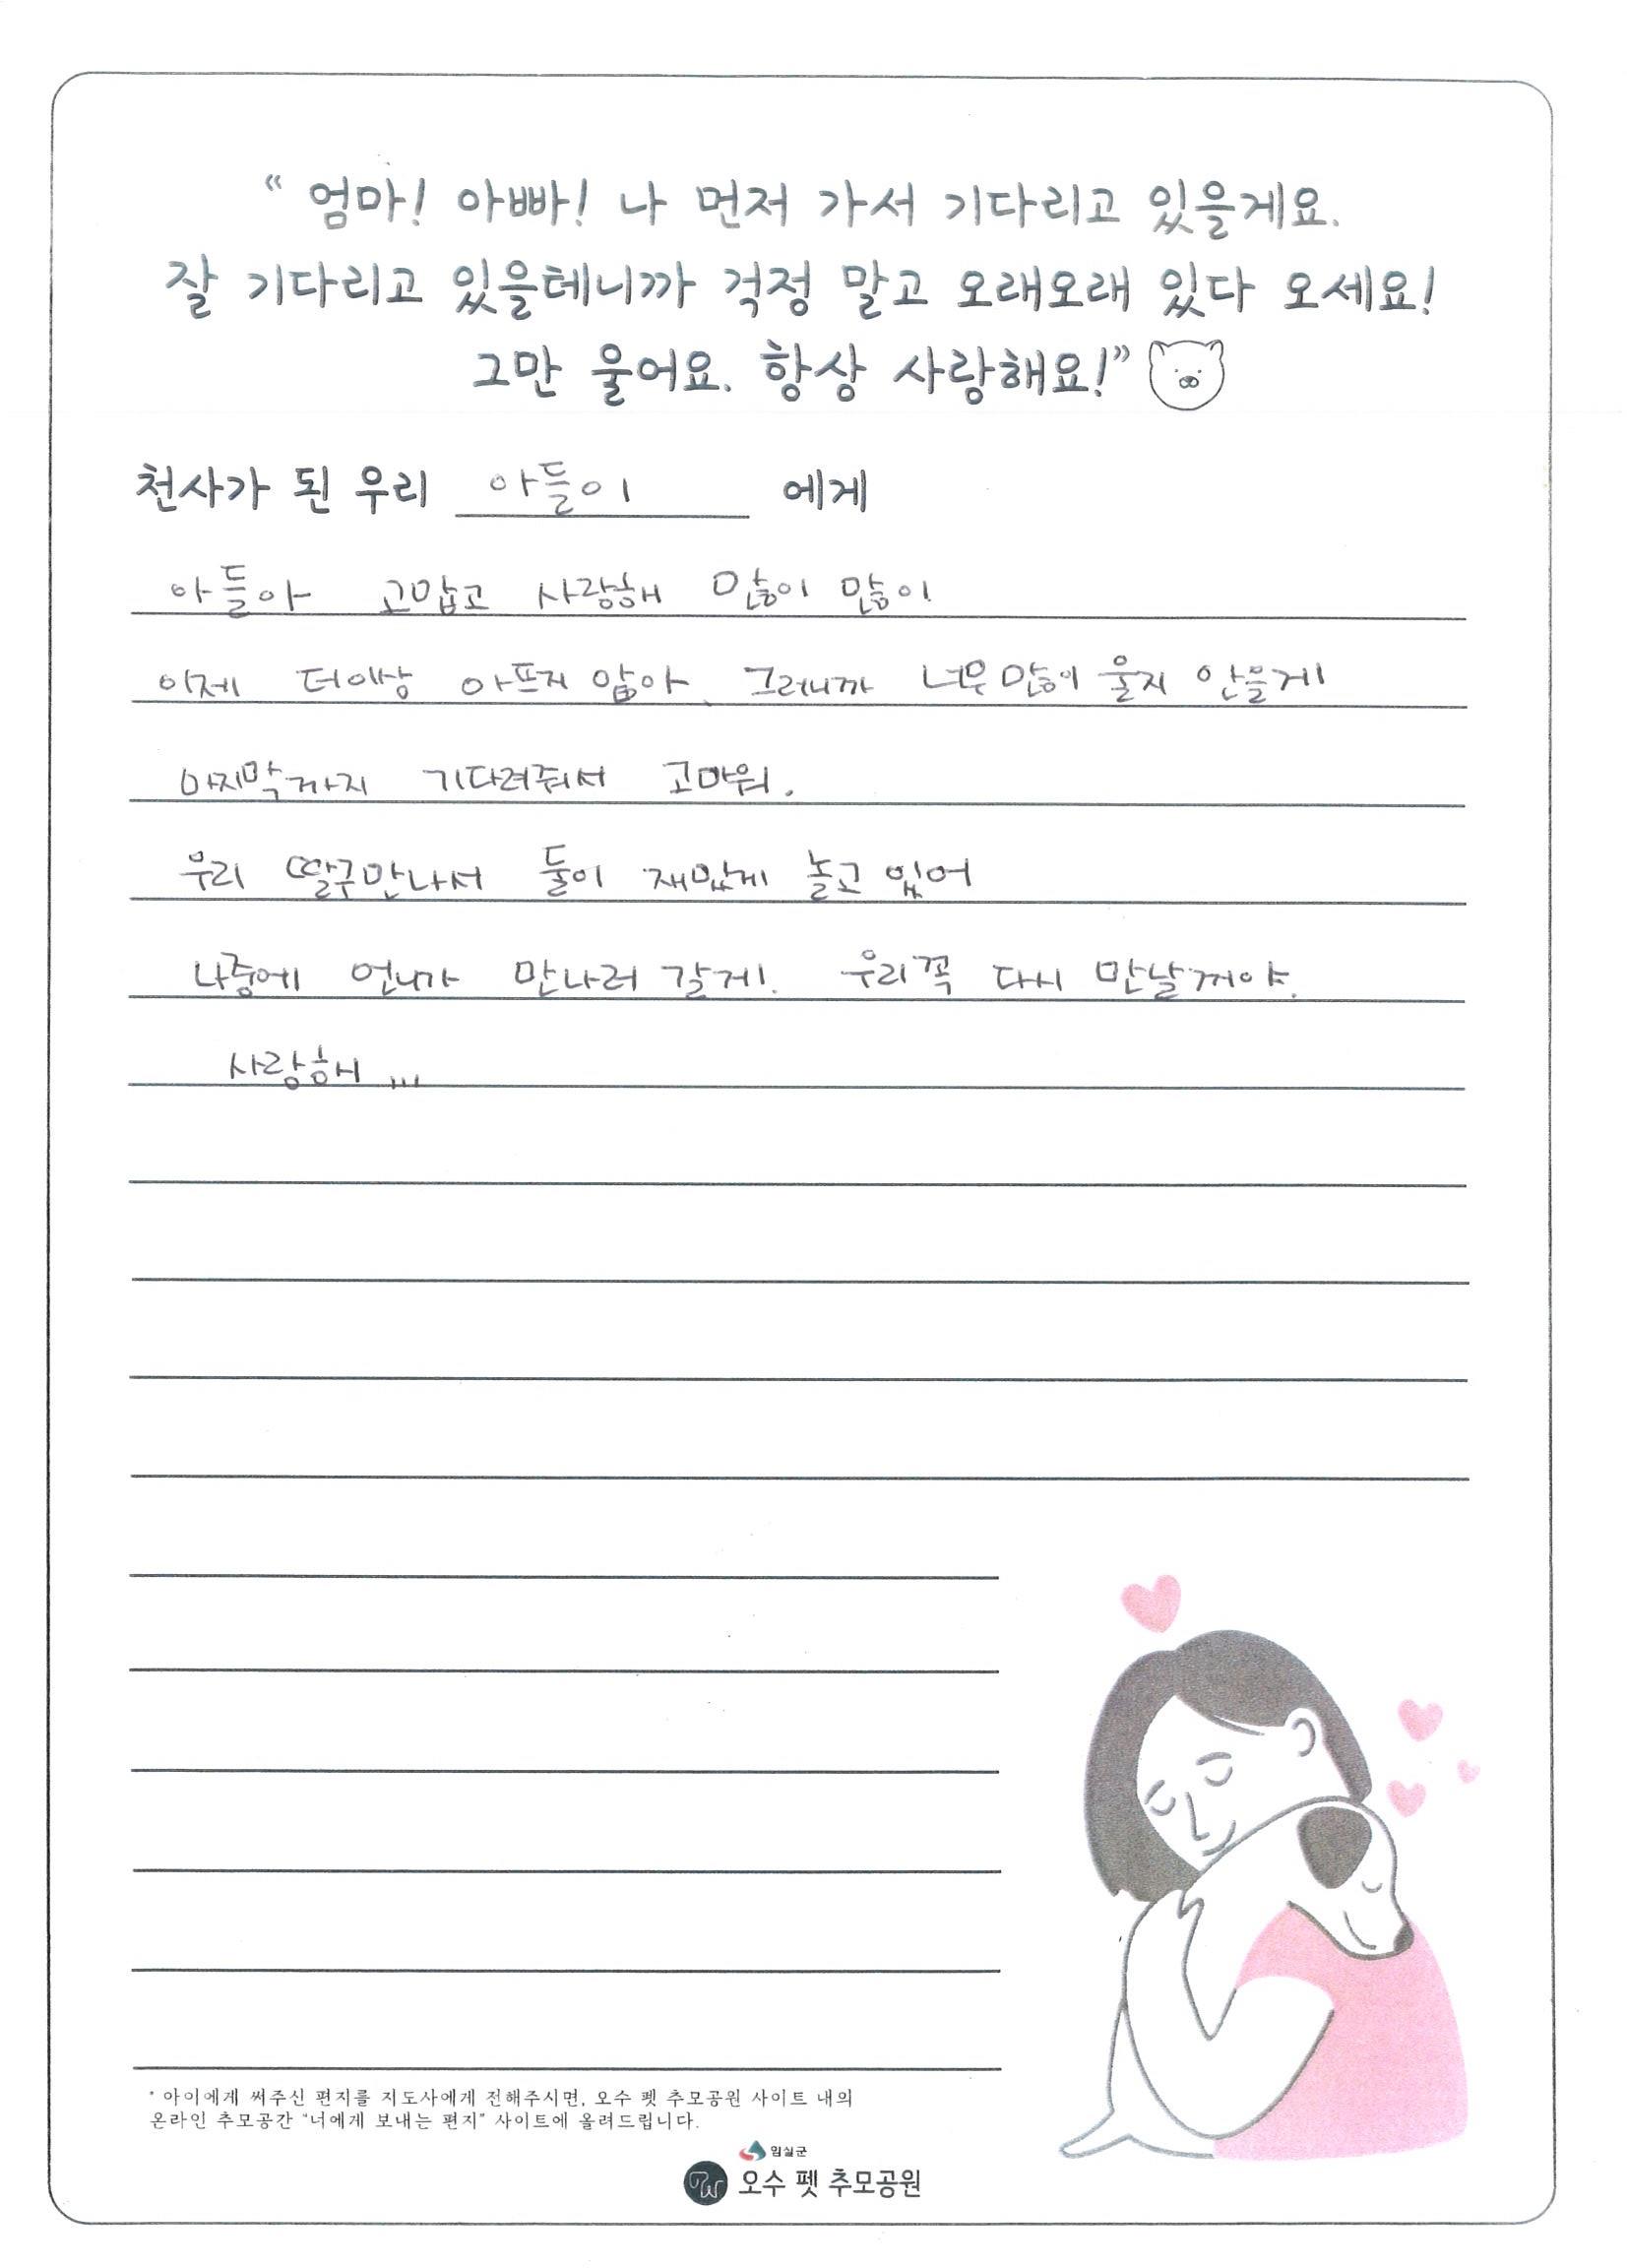 “ 엄마! 아빠! 나 먼저 가서 기다리고 있을게요.
잘 기다리고 있을테니까 걱정 말고 오래오래 있다 오세요!
그만 울어요. 항상 사랑해요!”
천사가 된 우리 아들이 에게
아들아 고맙고 사랑해 많이 많이
이제 더이상 아프지 않아. 그러니까 너무 많이 울지 안을게
마지막까지 기다려줘서 고마워.
우리 딸구만나서 둘이 재밌게 놀고 있어
나중에 언니가 만나러 갈게!. 우리꼭 다시 만날꺼야.
사랑해 ...
* 아이에게 써주신 편지를 지도사에게 전해주시면, 오수 펫 추모공원 사이트 내의
온라인 추모공간 “너에게 보내는 편지” 사이트에 올려드립니다.
임실군
오수 펫 추모공원